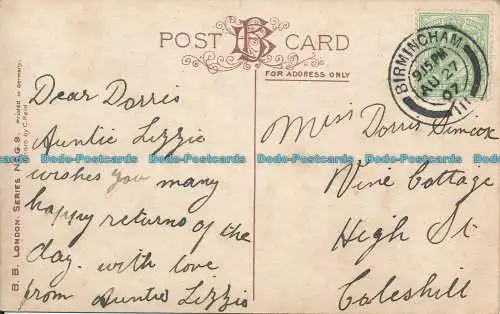 POST CARD
FOR ADDRESS ONLY
BIRMINGHAM
9.15 PM
AU 27
07
Dear Dorris
Auntie Lizzie
wishes you many
happy returns of the
day. with love
from Auntie Lizzie
Miss Dorris Simcox
Vine Cottage
High St
Coleshill
B. B. LONDON SERIES
Printed in Germany.
Dodo-Postcards Dodo-Postcards Dodo-Postcards Dodo-Postcards Dodo-Postcards